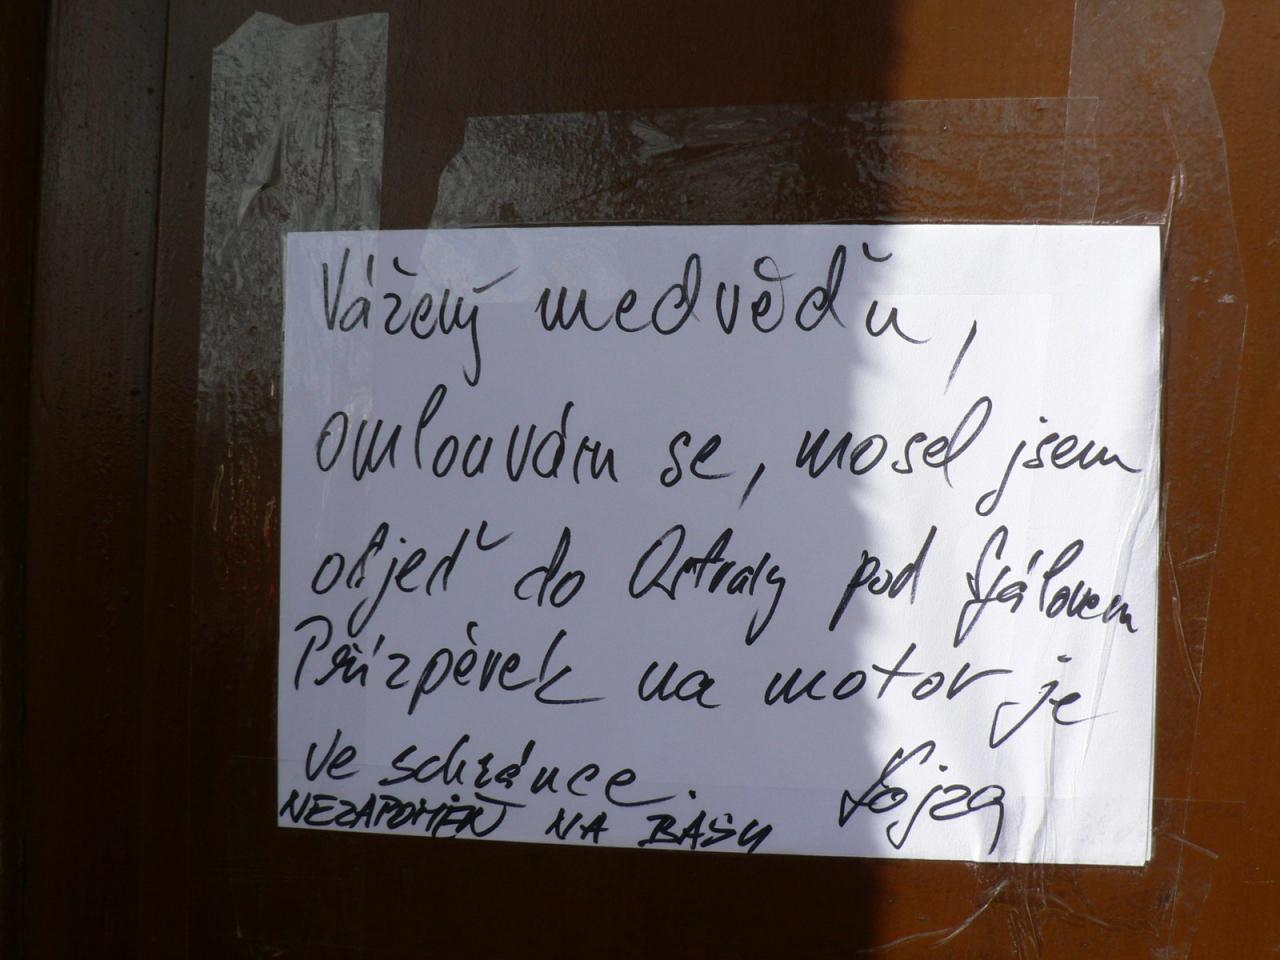 Vážený medvědů,
omlouvám se, mosel jsem
odjeď do Ostravy pod Kyjálovem
Příspěvek na motor je
ve schránce. Lojza
NEZAPOMĚŇ NA BÁSU